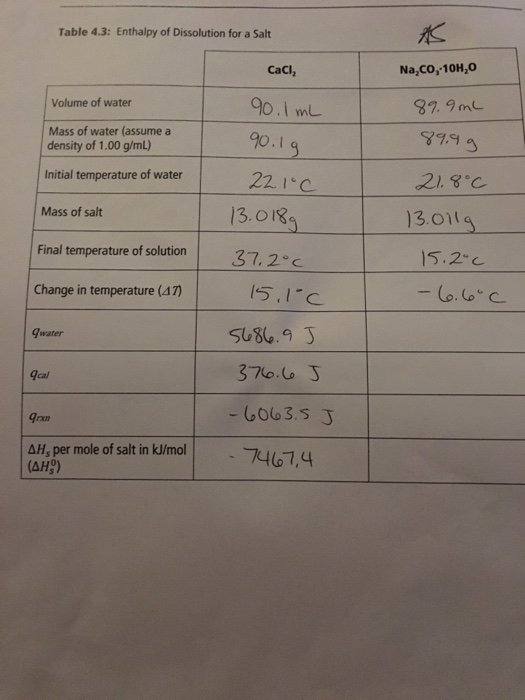 Table 4.3: Enthalpy of Dissolution for a Salt
CaCl₂ Na₂CO₃·10H₂O
Volume of water 90.1 mL 89.9mL
Mass of water (assume a density of 1.00 g/mL) 90.1g 89.9g
Initial temperature of water 22.1°C 21.8°C
Mass of salt 13.018g 13.011g
Final temperature of solution 37.2°C 15.2°C
Change in temperature (ΔT) 15.1°C -6.6°C
qwater 5686.9 J
qcal 376.6 J
qrxn -6063.5 J
ΔHₛ per mole of salt in kJ/mol (ΔHₛ⁰) -7467.4